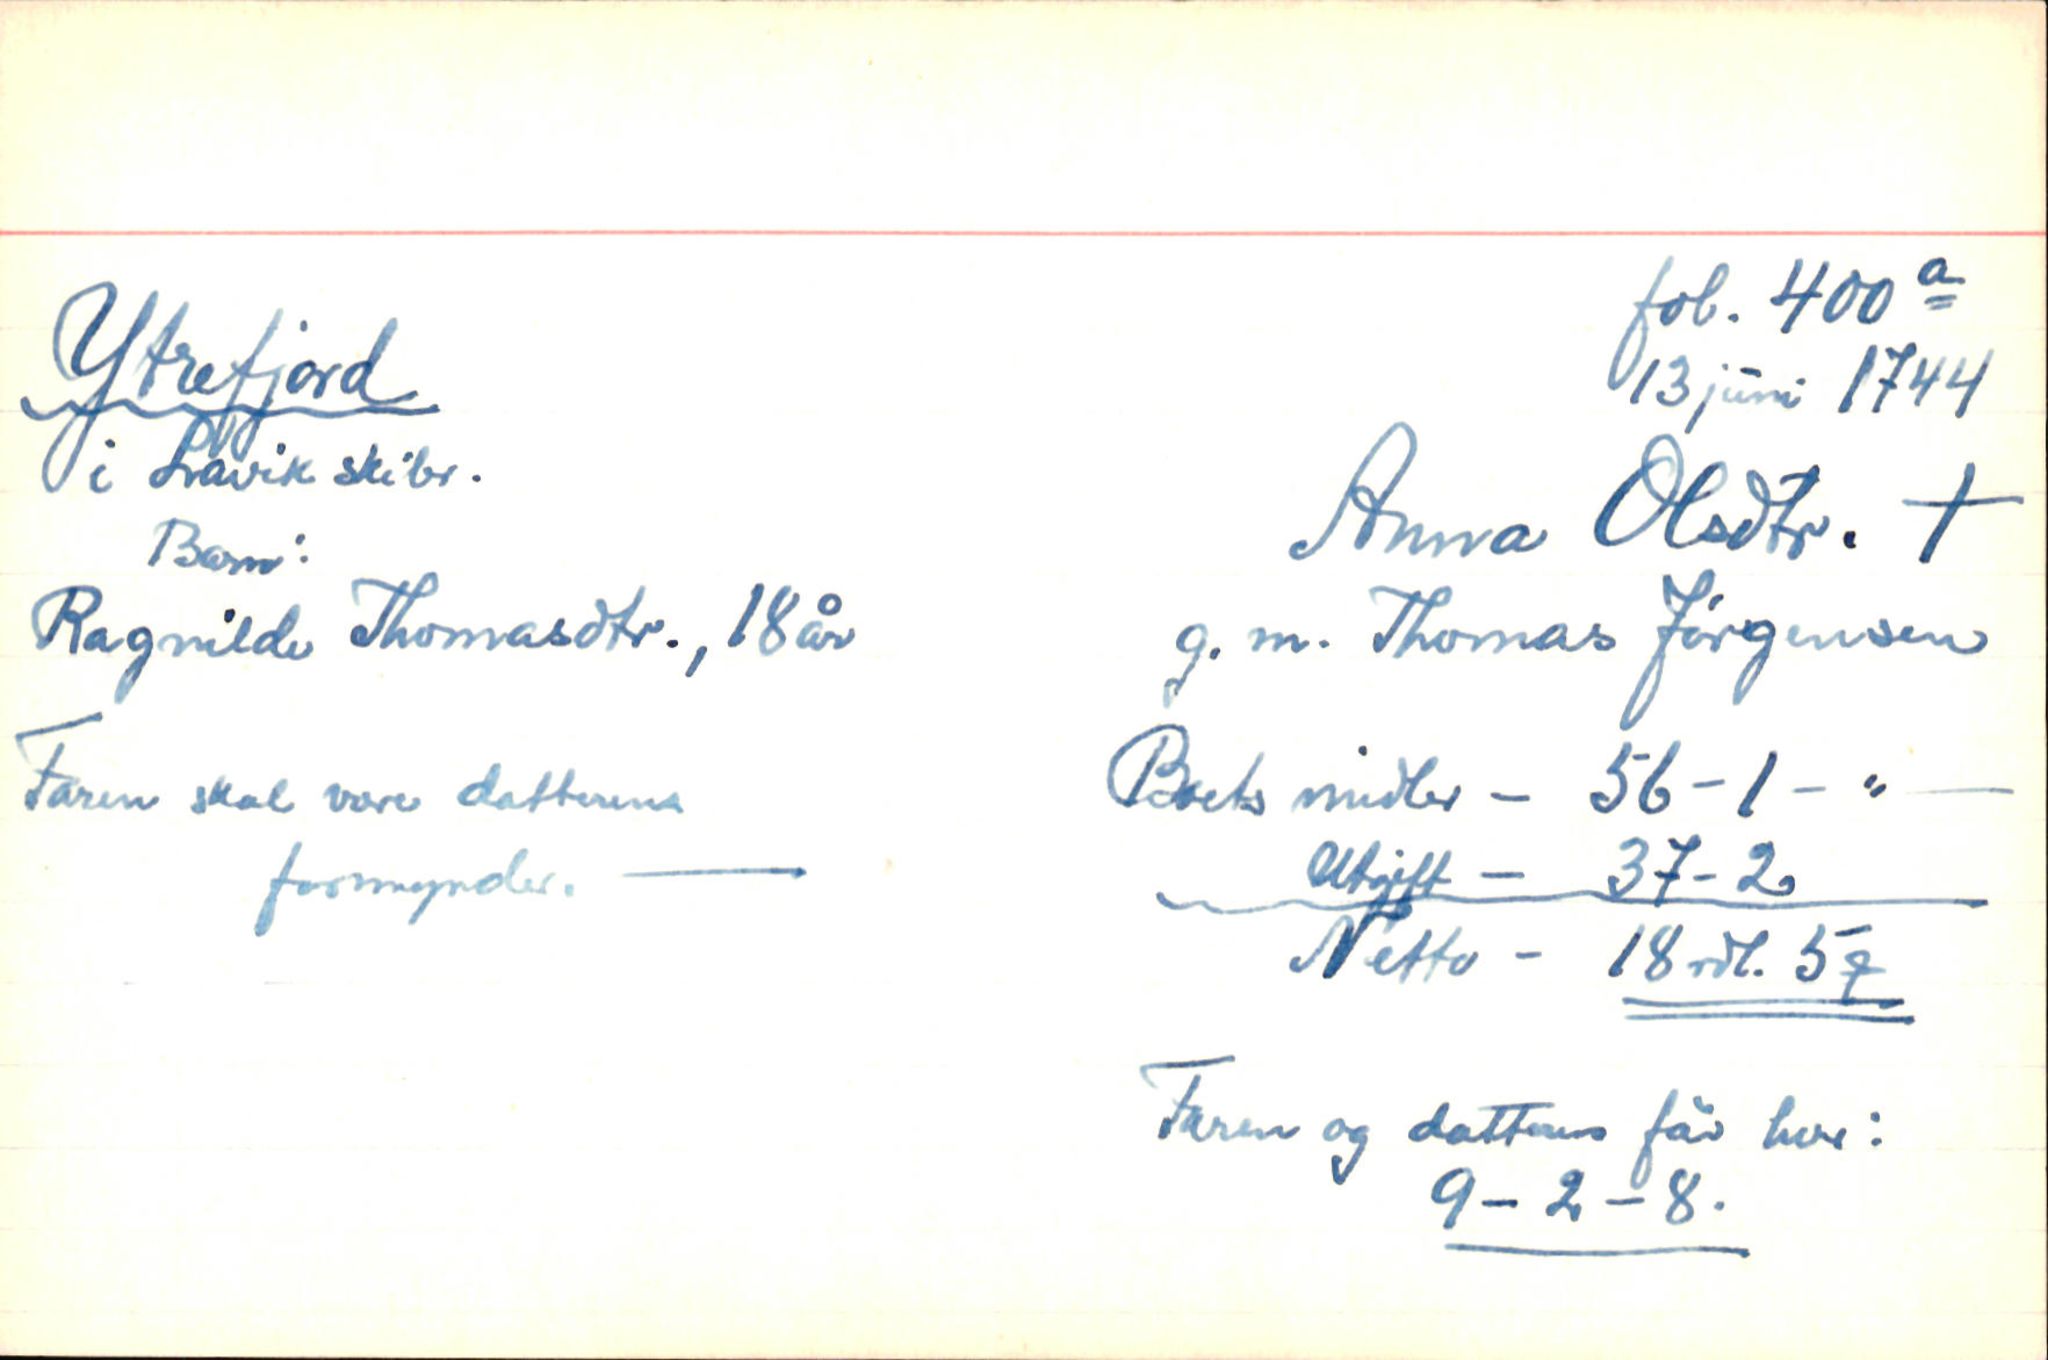 Ytrefjord
i Lavik skibr.
Barn:
Ragnilde Thomasdtr., 18 år
Faren skal være datterens
formynder. —
fol. 400 a
13 juni 1744
Anna Olsdtr. †
g. m. Thomas Jørgensen
Boets midler – 56 – 1 – " —
Utgift – 37 – 2
Netto – 18 rdl. 5
Faren og datteren får hver:
9 – 2 – 8.